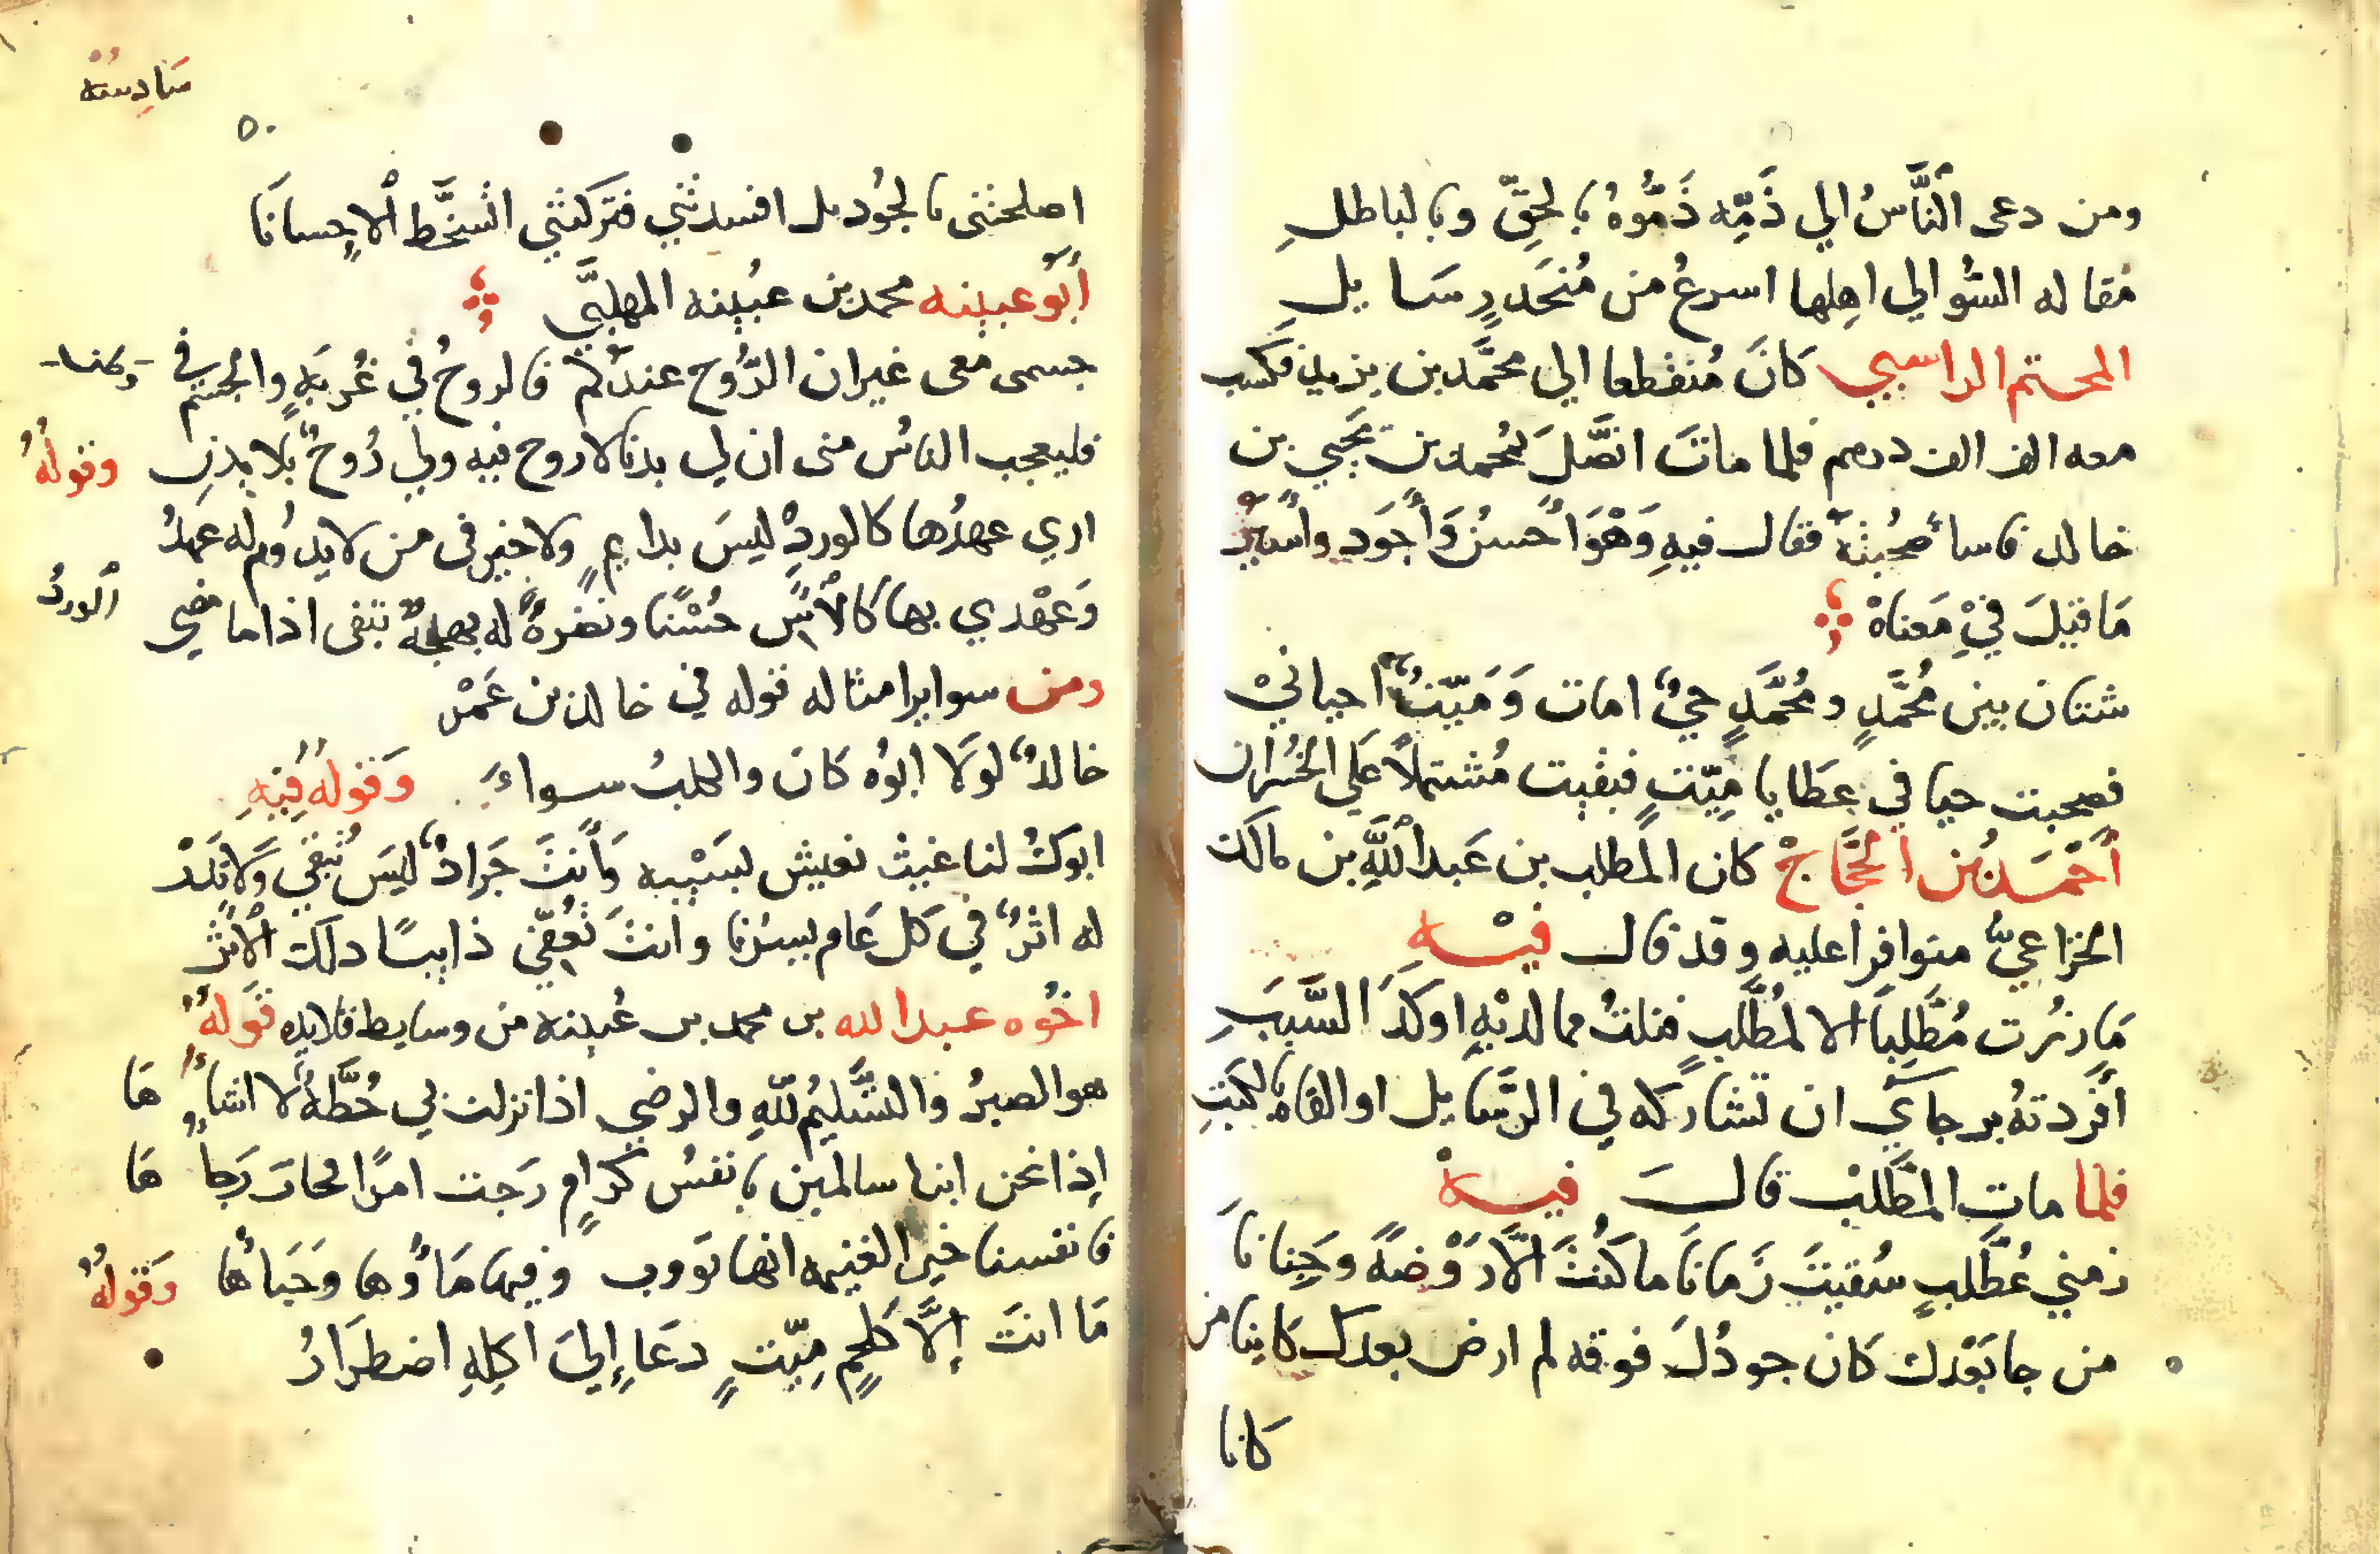 ومن دعى ٱلنَّاسُ الي ذَمِّه ذَمُّوهُ بالحقِّ وبالباطلِ
مقاله السُّوالي اهِلها اسرعُ من مُنحَدرٍ سَايلِ
المحستم الراسبي كَانَ مُنقطعا الي محمَّد بن يزيد فكسب
معه الف الف درهم فلما ماتَ اتَّصَلَ بمُحمد بن يحيي بن
خالد فاسا صُحبتهُ فقال فيهِ وَهْوَ احْسنُ وَأجَود واسير
مَا قيلَ فيْ مَعناهْ
شتان بين مُحمَّدٍ ومُحمَّدٍ حيٌّ امات وَمَيّتٌ احياني
فصحبت حيا في عطَايا مَيّتٍ فبقيت مُشتملاً علَي الخُسران
أحْمَدُ بُن الحَجَّاجْ كان المطلب بن عَبد ٱللَّهِ بن مالك
الخزاعيُّ متوافرا عليه وقد قال فيْه
مَا زُرت مُطَّلِباً الا لمُطَّلَبٍ فنلتُ مما لديْهِ اوكَدَ السَّببَ
أفردتهُ برجاي ان تشاركه في الرسَّايل او القاه بالكتبِ
فلما مات المطَّلبْ قالَ فيهْ
زمني بمُطَّلبٍ سُقيتَ زَماناَ ما كُنتَ الَّا رَوْضةً وجَناناَ
من جا بَعْدك كَان جودُكَ فوقه لم ارض بعدك كَاينا من
كانا
سَادِسُة
٥٠
اصلحتنى بالجُود بل افسدتني فتركتنى اتسخَّط ٱلاحسانَا
أبُو عيينه محمد بن عُيينه المهلبَّي
جسمى معى غير ان الرُّوح عندكُمْ فالروحُ في غُربَةٍ والجسم في وطن
فليعجب الناسُ منى ان لي بدنا لا روح فيه ولي رُوحٌ بلا بدن وقولُهُ
اري عهدُها كالوردِ ليسَ بدايمٍ ولا خير فى من لا يدُوم له عهدُ
وَعهْدي بها كَالآسِ حُسْنًا ونضرةً له بهجةٌ تبقى اذا ما مضي ٱلوردُ
ومن سواير امثاله قوله في خالد بن عَمْرو
خالدٌ لولَا ابُوه كان والكلبُ سواءَ وَقولُهُ فيَهِ
ابوكَ لنا غيث نعيش بسَيْبه وَأنتَ جَرادٌ ليسَ تُبقي وَلَا تَذَرْ
له اثرٌ في كل عَام يسرُنا وانتَ تُعَفّي ذايبًا ذلك الأثرْ
اخُوه عبد الله بن محمد بن عُيينة من وسايط قلايده قَولهُ
هو الصبرُ والتَّسليمُ للّهِ والرضي اذا نزلت بي خُطَّةٌ لا اشا ؤُهَا
إذا نحن ابنا سالمين بانفسُ كرَامٍ رَجت امرًا فخابَ رَجاؤُهَا
فانفسنا خير الغنيمه انها تؤوب وفيها مَاؤُها وحَيَاهَا وَقولُهُ
مَا انتَ إلَّا كَلحمٍ مَيّتٍ دعَا إليَ اكِلهِ اضطرَارُ